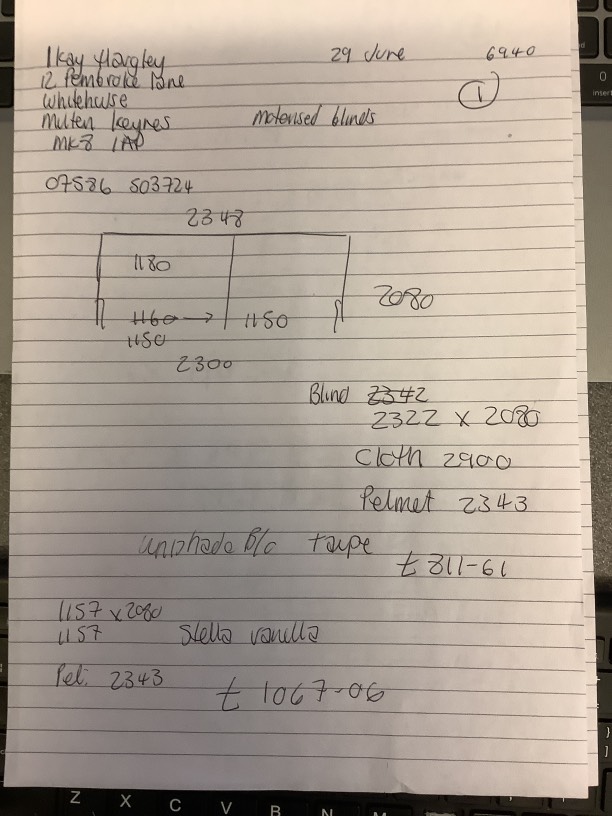 1 Kay Hargley 29 June 6940
12 Pembroke Lane 1
Whitehouse
Milten Keynes Motorised blinds
MK8 1AP
07586 503724
2348
1180
2080
1160 → 1150
1150
2300
Blind 2342
2322 x 2080
Cloth 2900
Pelmet 2343
unishade B/o taupe
t 811-61
1157 x 2080
1157 Stella vanilla
Pel. 2343
t 1067-06